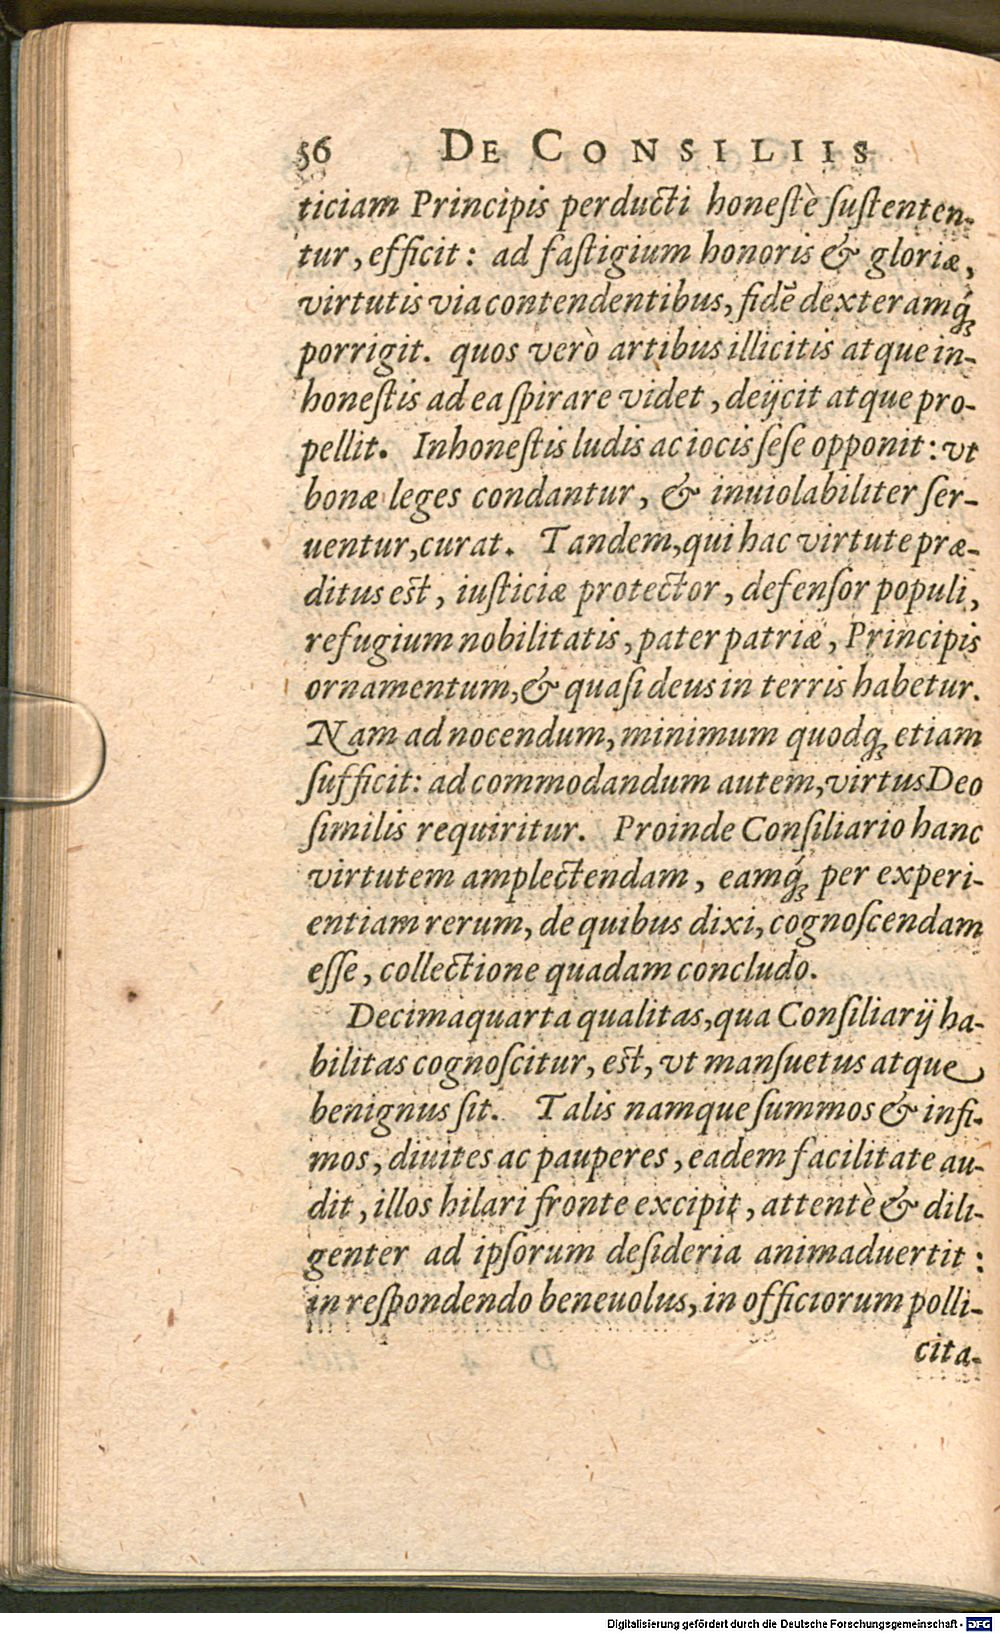 56 DE CONSILIIS
ticiam Principis perducti honestè ſuſtenten-
tur, efficit: ad faſtigium honoris & gloriæ,
virtutis via contendentibus, fidē dexteramq́;
porrigit. quos verò artibus illicitis atque in-
honeſtis ad ea ſpirare videt, deijcit atque pro-
pellit. Inhoneſtis ludis ac iocis ſeſe opponit: vt
bonæ leges condantur, & inuiolabiliter ſer-
uentur, curat. Tandem, qui hac virtute præ-
ditus est, iuſticiæ protector, defenſor populi,
refugium nobilitatis, pater patriæ, Principis
ornamentum, & quaſi deus in terris habetur.
Nam ad nocendum, minimum quodq; etiam
ſufficit: ad commodandum autem, virtus Deo
ſimilis requiritur. Proinde Conſiliario hanc
virtutem amplectendam, eamq́; per experi-
entiam rerum, de quibus dixi, cognoſcendam
eſſe, collectione quadam concludo.
Decimaquarta qualitas, qua Conſiliarij ha-
bilitas cognoſcitur, est, vt manſuetus atque
benignus ſit. Talis namque ſummos & infi-
mos, diuites ac pauperes, eadem facilitate au-
dit, illos hilari fronte excipit, attentè & dili-
genter ad ipſorum deſideria animaduertit:
in reſpondendo beneuolus, in officiorum polli-
cita-
Digitalisierung gefördert durch die Deutsche Forschungsgemeinschaft - DFG